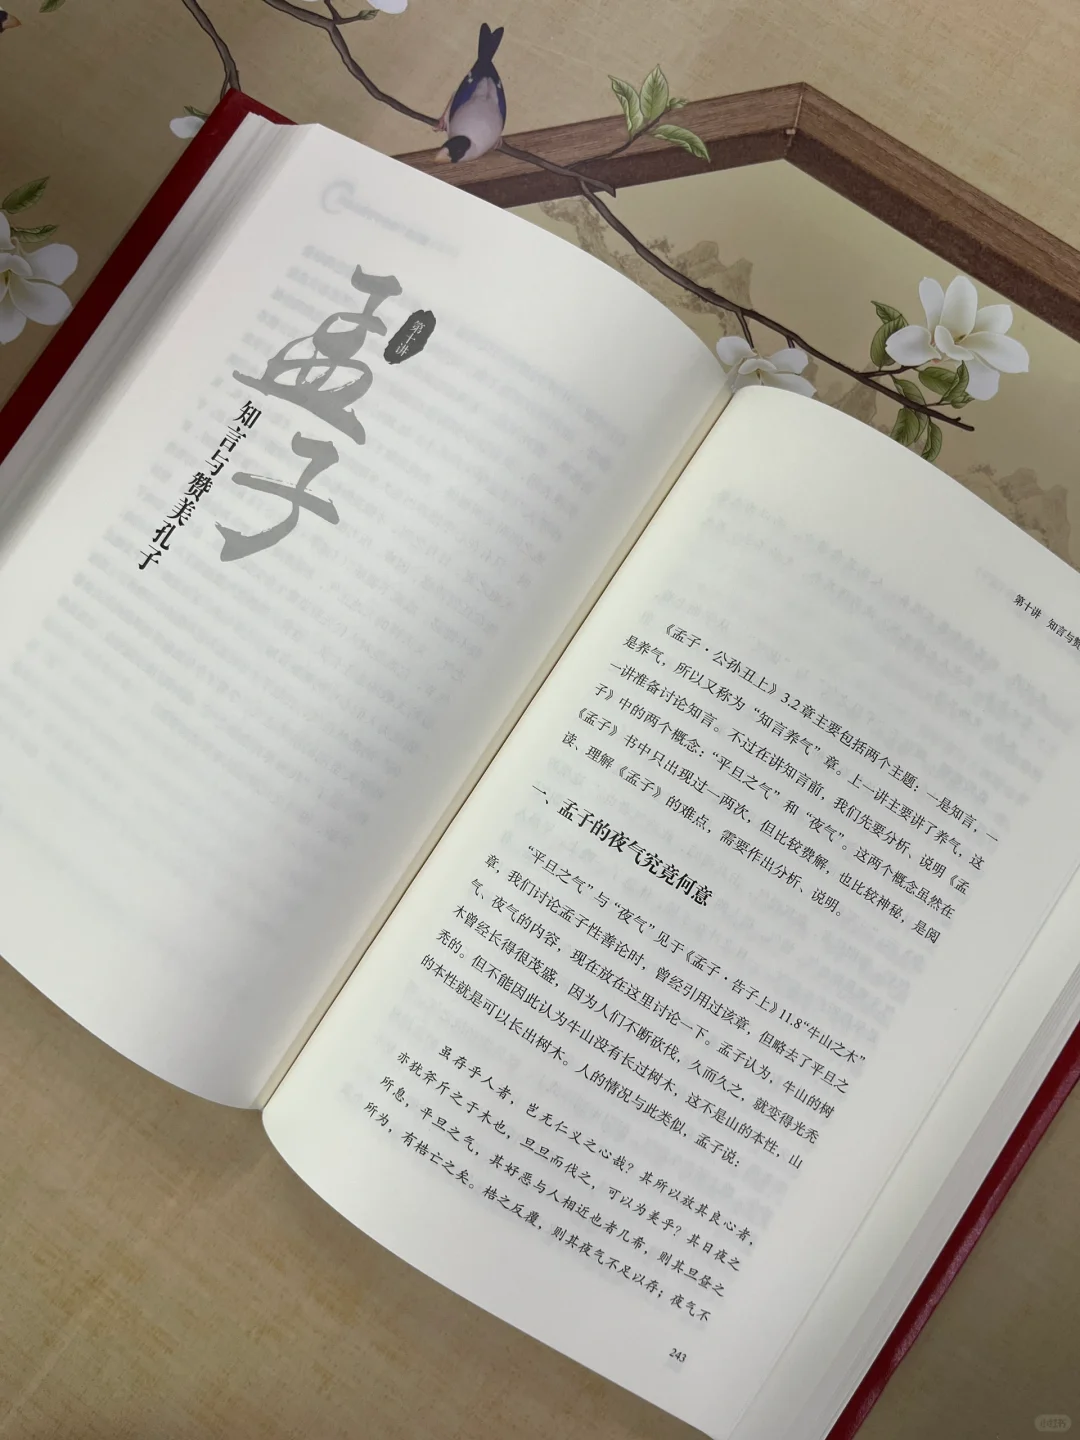 孟子
第十讲
知言与赞美孔子
第十讲 知言与赞
《孟子·公孙丑上》3.2章主要包括两个主题：一是知言，一
是养气，所以又称为“知言养气”章。上一讲主要讲了养气，这
一讲准备讨论知言。不过在讲知言前，我们先要分析、说明《孟
子》中的两个概念：“平旦之气”和“夜气”。这两个概念虽然在
《孟子》书中只出现过一两次，但比较费解，也比较神秘，是阅
读、理解《孟子》的难点，需要作出分析、说明。
一、孟子的夜气究竟何意
“平旦之气”与“夜气”见于《孟子·告子上》11.8“牛山之木”
章，我们讨论孟子性善论时，曾经引用过该章，但略去了平旦之
气、夜气的内容，现在放在这里讨论一下。孟子认为，牛山的树
木曾经长得很茂盛，因为人们不断砍伐，久而久之，就变得光秃
秃的。但不能因此认为牛山没有长过树木，这不是山的本性，山
的本性就是可以长出树木。人的情况与此类似，孟子说：
虽存乎人者，岂无仁义之心哉？其所以放其良心者，
亦犹斧斤之于木也，旦旦而伐之，可以为美乎？其日夜之
所息，平旦之气，其好恶与人相近也者几希，则其旦昼之
所为，有梏亡之矣。梏之反覆，则其夜气不足以存；夜气不
243
小红书